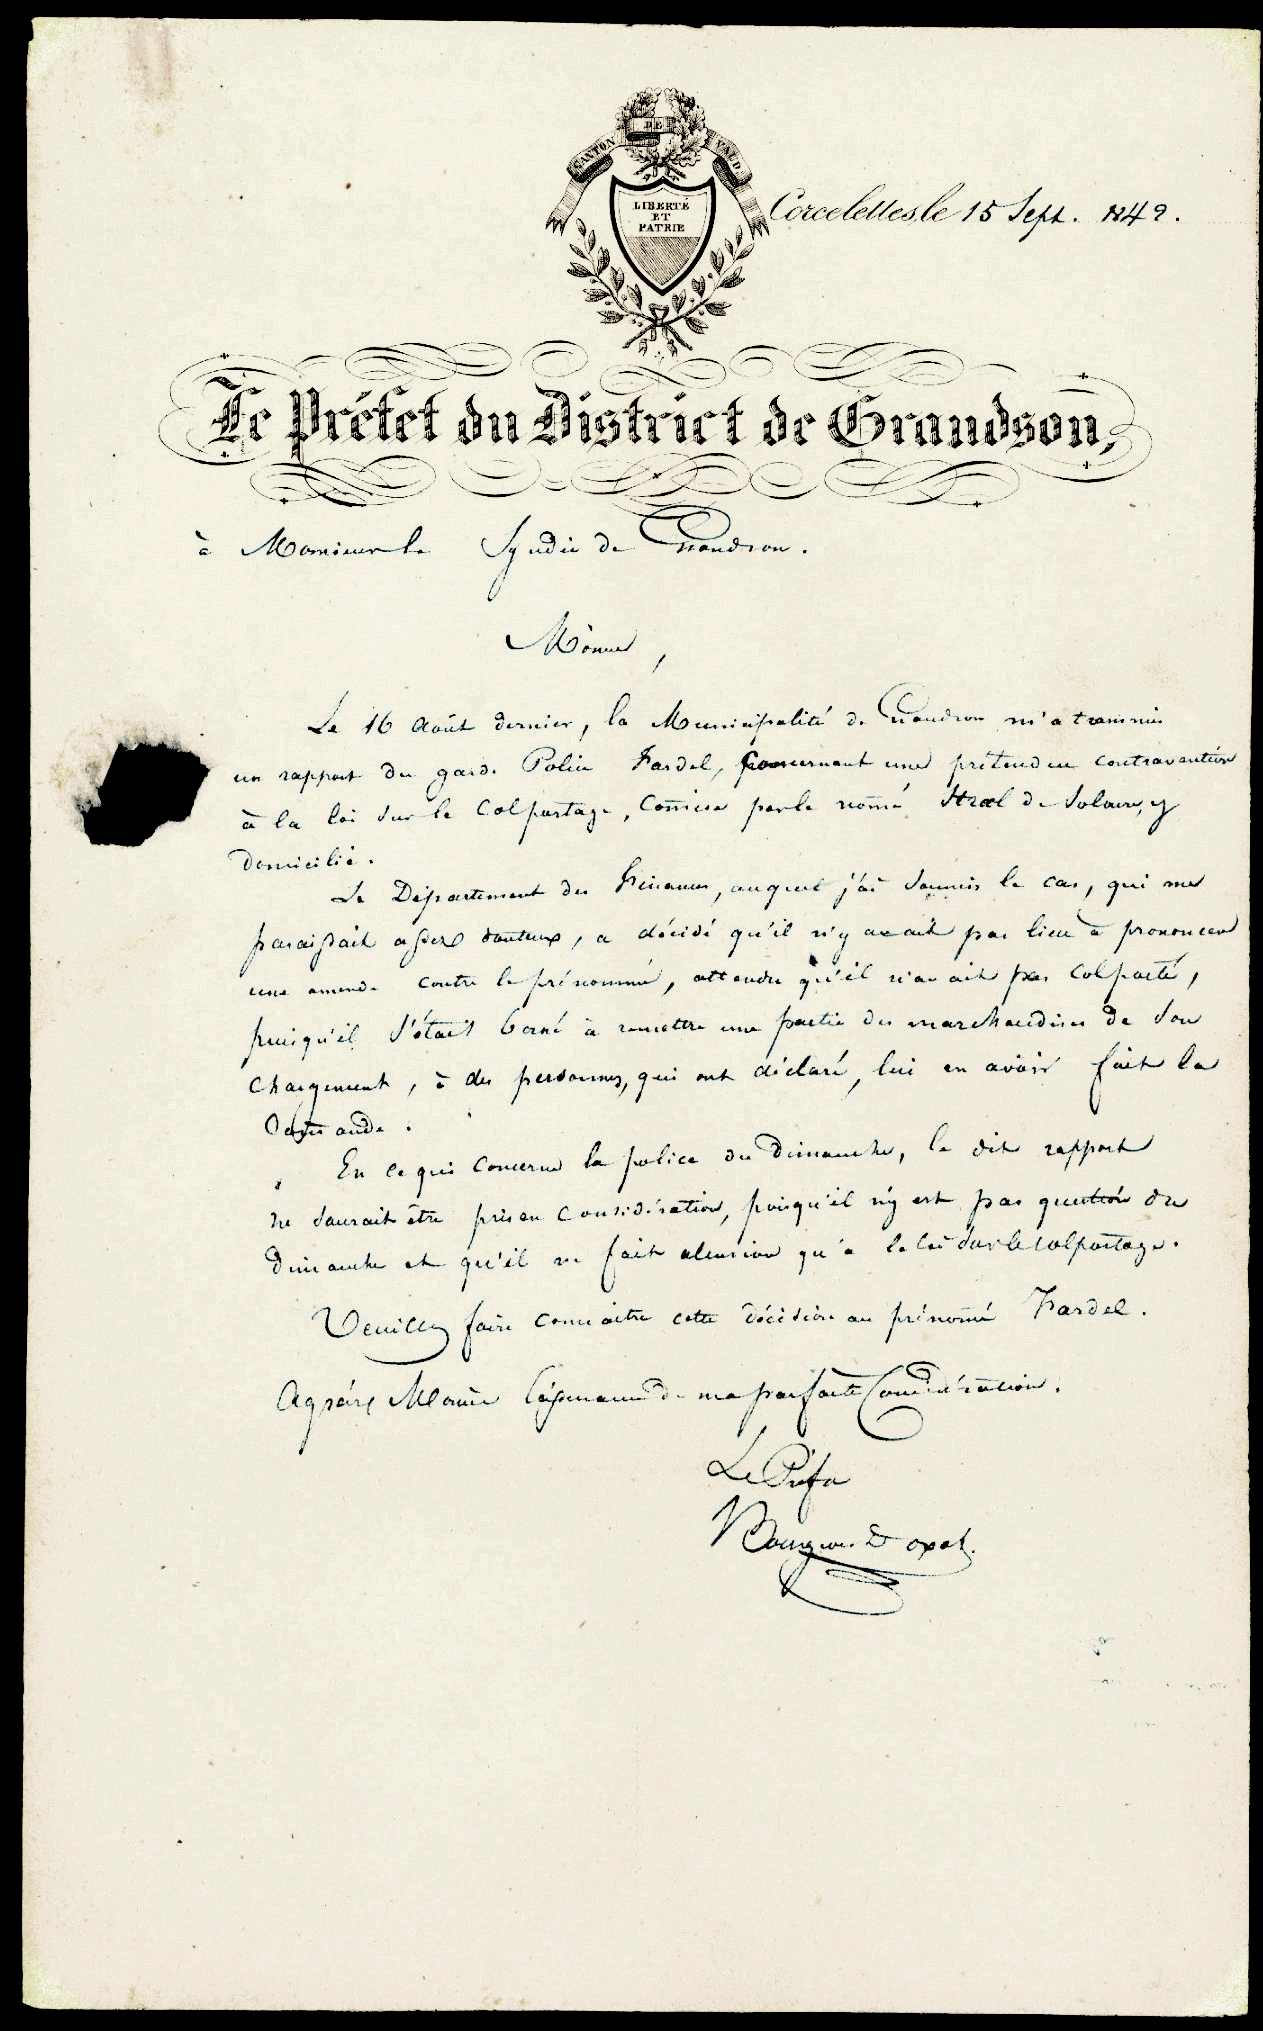 CANTON DE VAUD.
LIBERTÉ
ET
PATRIE
Corcelettes, le 15 Sept. 1849.
Le Préfet du District de Grandson,
à Monsieur le Syndic de Grandson.
Monsieur,
Le 16 Août dernier, la Municipalité de Grandson m'a transmis
un rapport du garde Police Fardel, concernant une prétendue contravention
à la loi sur le Colportage, Comise par le nomé Strœl de Soleure, y
domicilié.
Le Département des Finances, auquel j'ai Soumis le cas, qui me
paraissait assez douteux, a décidé qu'il n'y avait pas lieu à prononcer
une amende contre le prénommé, attendu qu'il n'avait pas Colporté,
puisqu'il S'était borné à remettre une partie des marchandises de Son
Chargement, à des personnes, qui ont déclaré, lui en avoir fait la
Demande.
En ce qui Concerne la police du Dimanche, le dit rapport
ne Saurait être pris en Considération, puisqu'il n'y est pas question du
Dimanche et qu'il ne fait alusion qu'à la loi Sur le Colportage.
Veuillez faire connaître cette décision au prénomé Fardel.
Agréez l'assurance de ma parfaite Considération.
Le Préfet
Bourgeois Doxat.